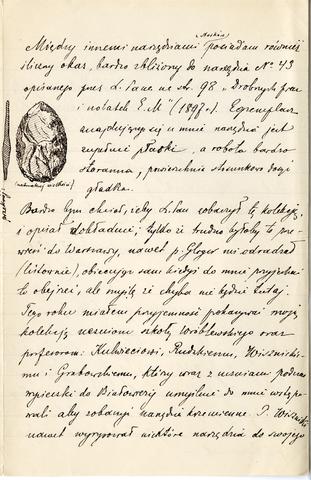 Między innemi narzędziami posiadam również
śliczny okaz, bardzo zbliżony do narzędzia No 43
opisanego przez L. Pana na st. 98. „Drobnych prac
i notatek E. M" (1897 r.). Egzemplarz
znajdujący się u mnie narzędzia jest
zupełnie płaski, a robota bardzo
staranna, powierzchnia stosunkowo dosyć
gładka.
(naturalnej wielkości)
przekrój
Bardo bym chciał, żeby L. Pan zobaczył tę kolekcję
i opisał dokładnie; tylko że trudno byłoby to prze-
wieźć do Warszawy, nawet p. Gloger mi odradzał
(listownie), obiecując sam kiedyś do mnie przyjechać
to obejrzeć, ale myślę że chyba nie będzie tutaj.
Tego roku miałem przyjemność pokazywać moją
kolekcję uczniom szkoły Wróblewskiego oraz
profesorom: Kulwieciowi, Rudzkiemu, Wiśnickie-
mu i Grabowskiemu, którzy wraz z uczniami podczas
wycieczki do Białowieży umyślnie do mnie wstępo-
wali aby zobaczyć narzędzia krzemienne. P.
nawet wyrysował niektóre narzędzia do swojego